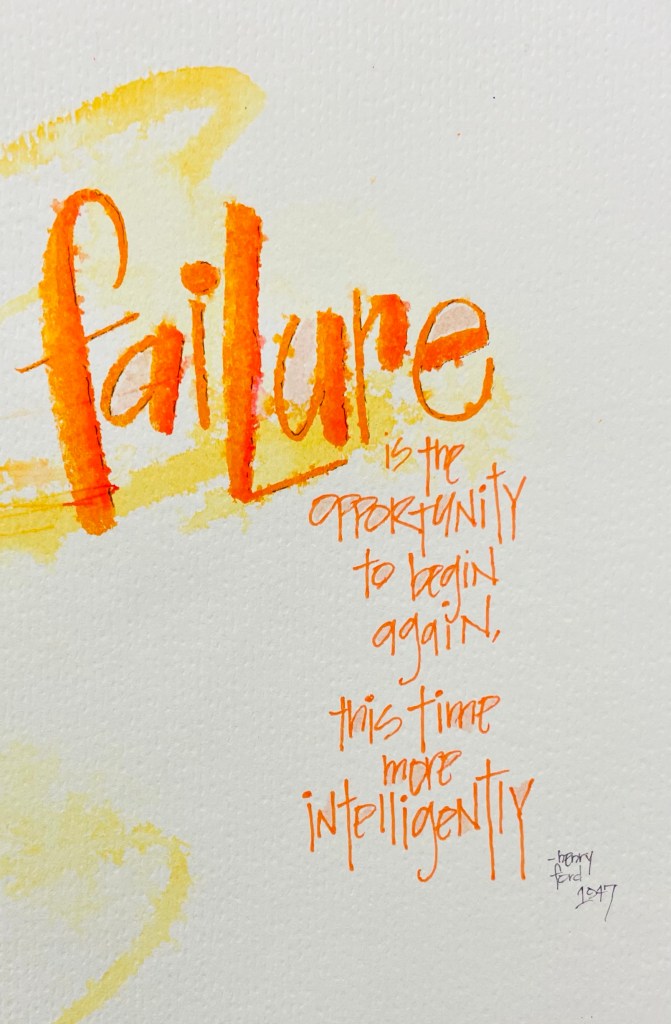 failure
is the
opportunity
to begin
again,
this time
more
intelligently
-henry
ford
1947